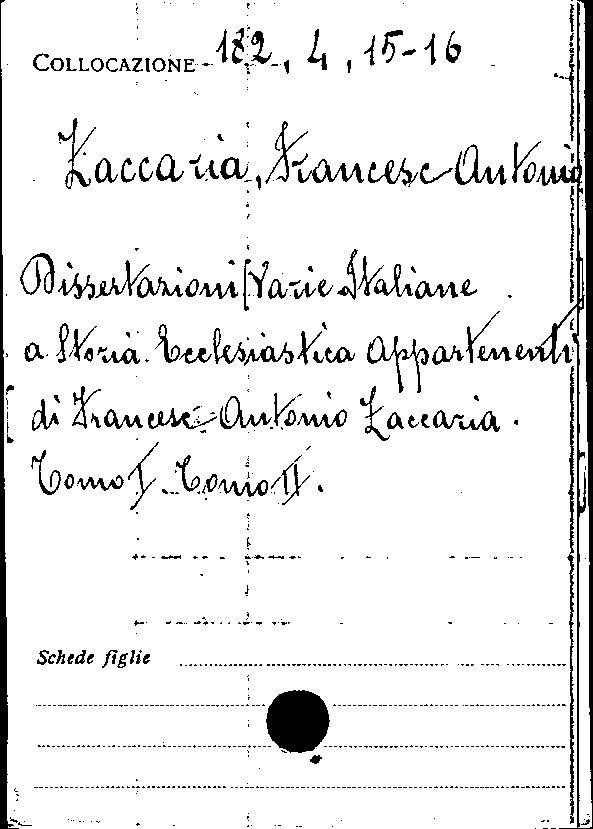 COLLOCAZIONE 182, 4, 15-16
Zaccaria, Francesc-Antonio
Dissertazioni Varie Italiane
a Storia Ecclesiastica Appartenenti
di Francesc-Antonio Zaccaria.
Tomo I. Tomo II.
Schede figlie